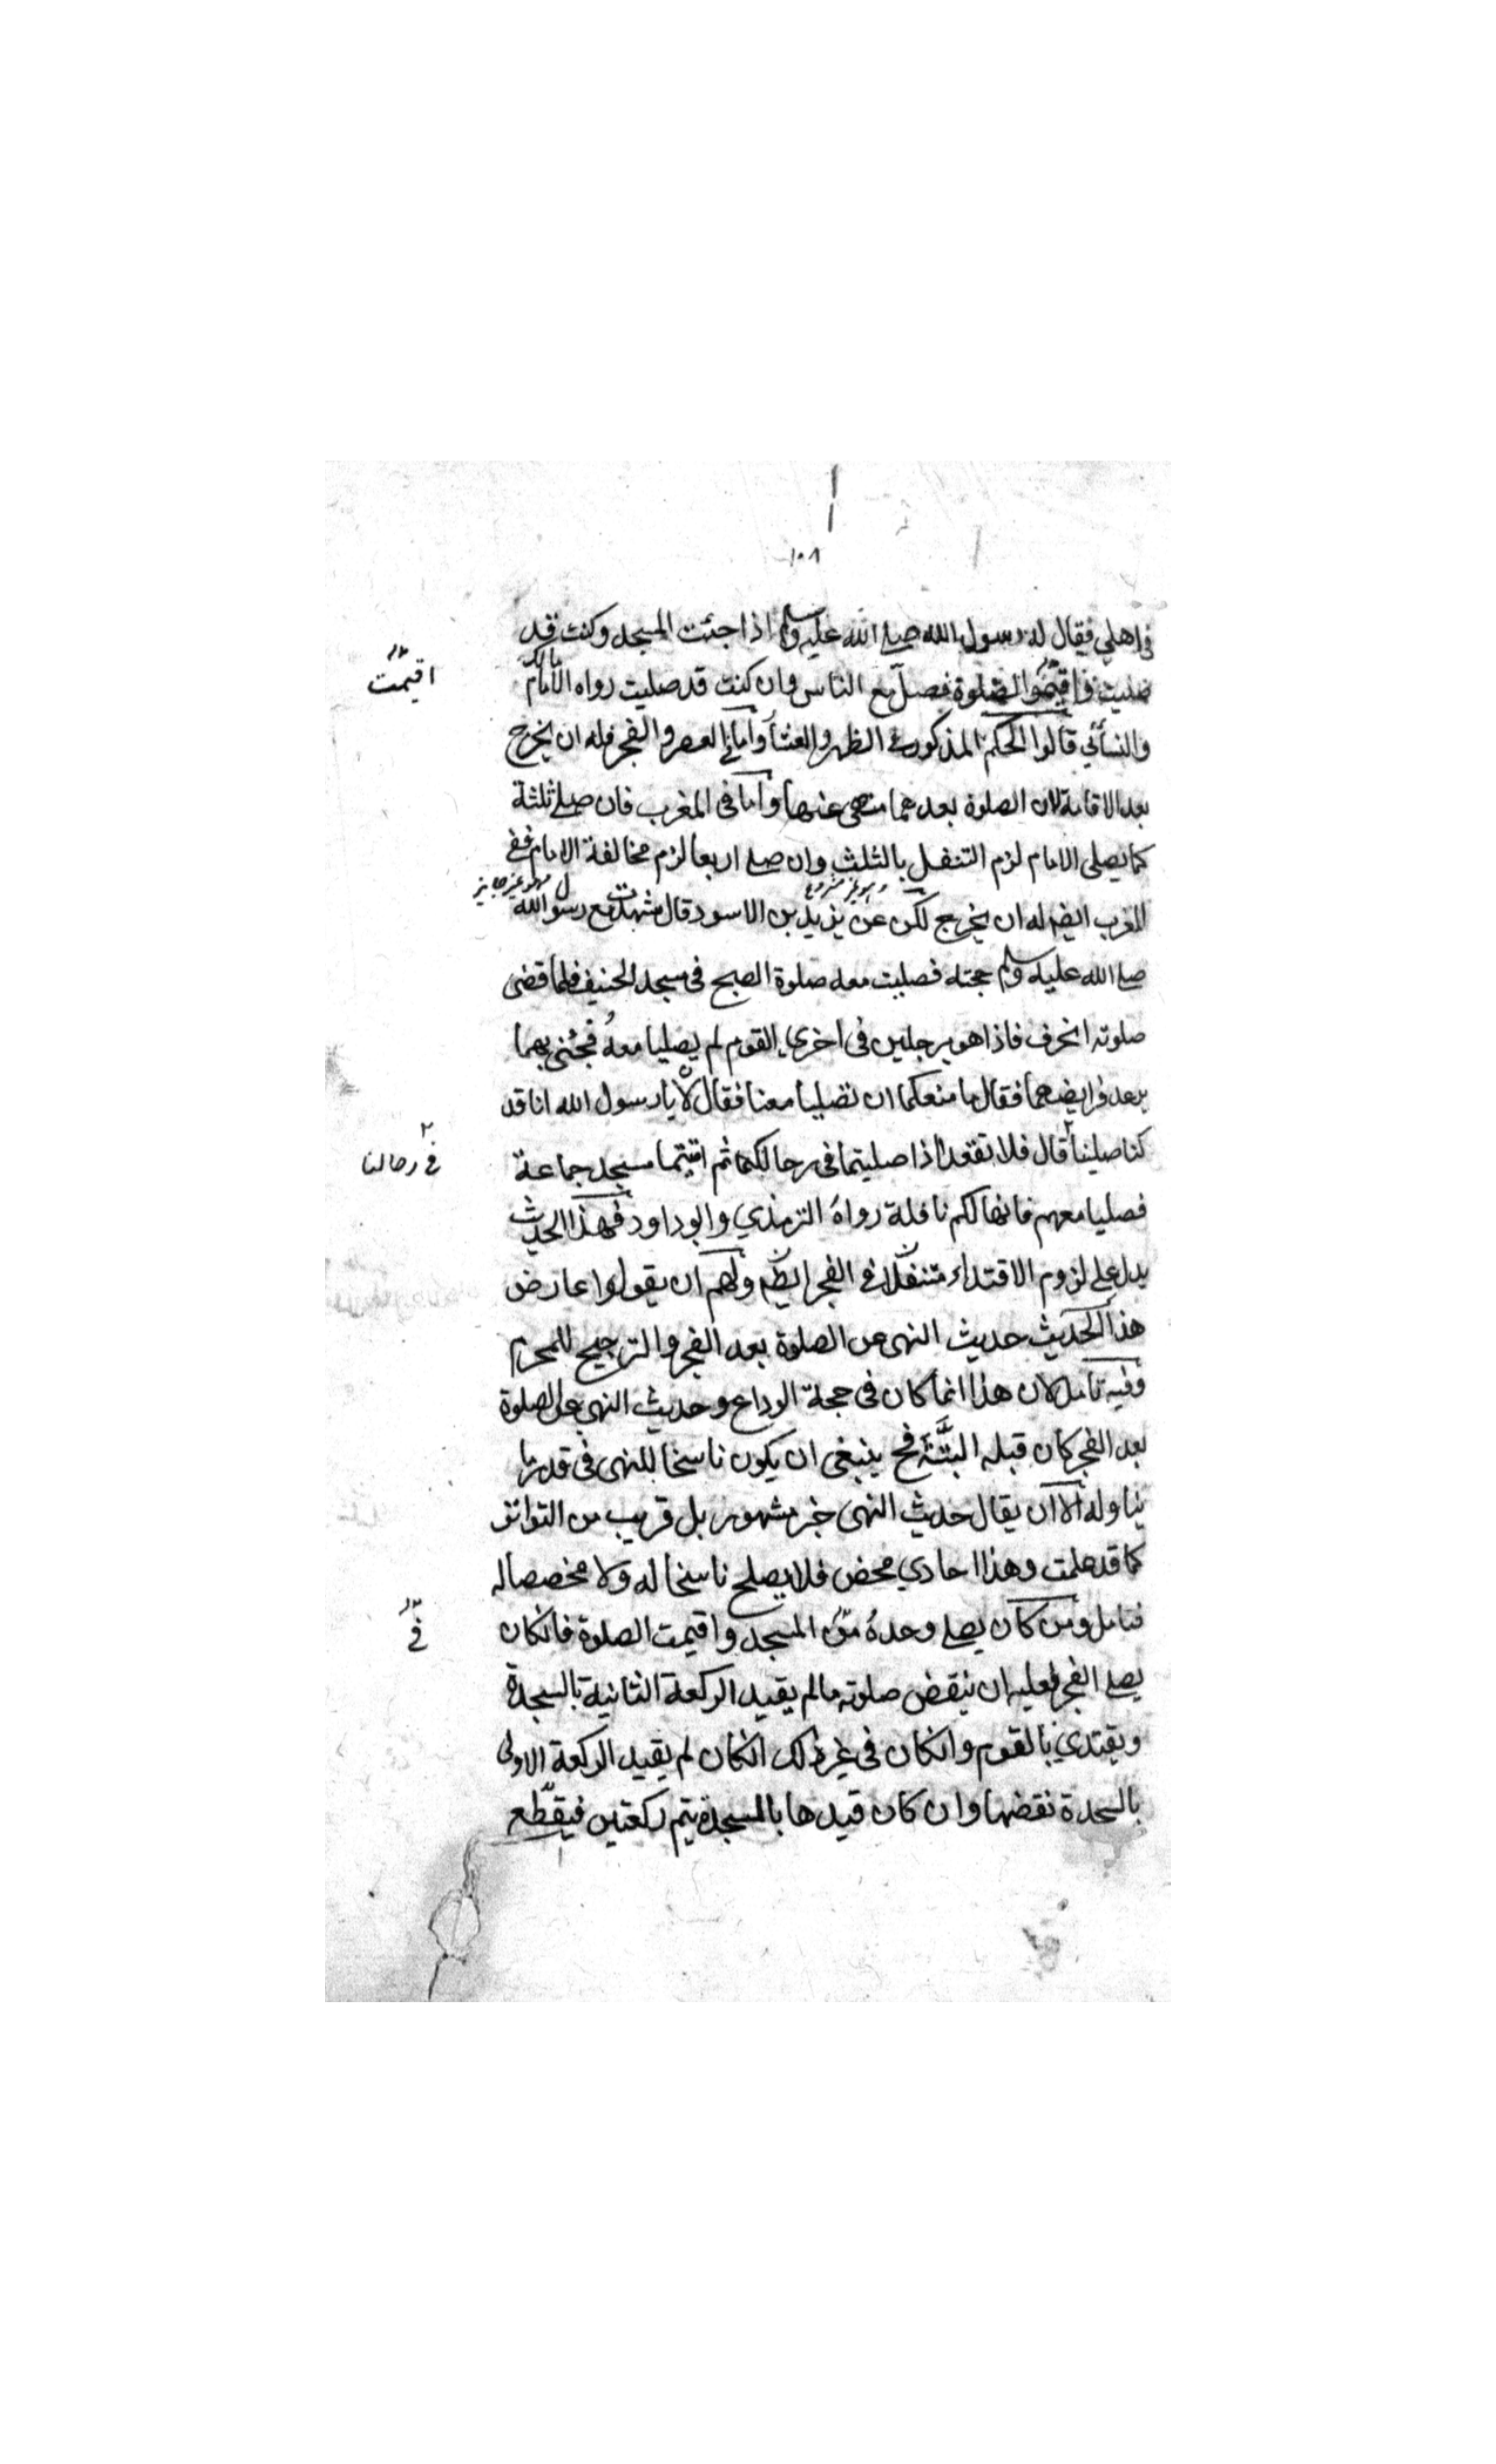 ١٠٨
في اهلي فيقال له رسول الله صلى الله عليه وسلم اذا جئت المسجد وكنت قد
صليت واقيموا الصلوة فصل مع الناس وان كنت قد صليت رواه الامام مالك
اقيمت
والنسائي قالوا الحكم المذكور في الظهر والعشا واما في العصر والفجر فله ان يخرج
بعد الاقامة لان الصلوة بعدهما منهى عنها واما في المغرب فان صلى ثلثة
كما يصلى الامام لزم التنفل بالثلث وان صلى اربعا لزم مخالفة الامام ففي
وهو غير مشروع
وهو غير جايز
المغرب ايضا له ان يخرج لكن عن يزيد بن الاسود قال شهدت مع رسول الله
صلى الله عليه وسلم حجته فصليت معه صلوة الصبح في مسجد الخيف فلما قضى
صلوته انحرف فاذا هو برجلين في اخرى القوم لم يصليا معه فجئ بهما
يرعد فرايضهما فقال ما منعكما ان تصليا معنا فقالا يا رسول الله انا قد
كنا صلينا قال فلا تفعلا اذا صليتما في رحالكما ثم اتيتما مسجد جماعة
في رحالنا
فصليا معهم فانها لكم نافلة رواه الترمذي وابو داود فهذا الحديث
يدل على لزوم الاقتداء متنفلا في الفجر ايضا ولهم ان يقولوا عارض
هذا الحديث حديث النهى عن الصلوة بعد الفجر والترجيح للمحرم
وفيه تامل لان هذا انما كان في حجة الوداع وحديث النهى عن الصلوة
بعد الفجر كان قبله البتة فح ينبغى ان يكون ناسخا للنهى في قدر ما
يناوله الا ان يقال حديث النهى خبر مشهور بل قريب من التواتر
كما قد علمت وهذا احادي محض فلا يصلح ناسخا له ولا مخصصا له
فتامل ومن كان يصلى وحده من المسجد واقيمت الصلوة فانكان
في
يصلى الفجر فعليه ان ينقض صلوته مالم يقيد الركعة الثانية بالسجدة
ويقتدي بالقوم وانكان في غير ذلك انكان لم يقيد الركعة الاولى
بالسجدة نقضها وان كان قيدها بالسجدة يتم ركعتين فيقطع